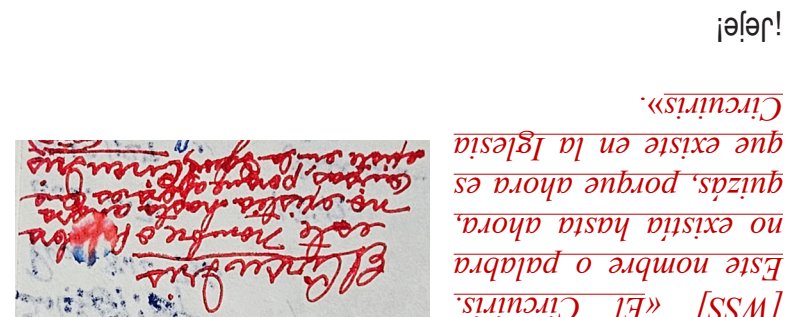 [WSS] «El Circuiris.
Este nombre o palabra
no existía hasta ahora,
quizás, porque ahora es
que existe en la Iglesia
Circuiris».
¡Jeje!
El Circu Iris
este nombre o
no existía hasta ahora
quizas, porque ahora es que
existe en la